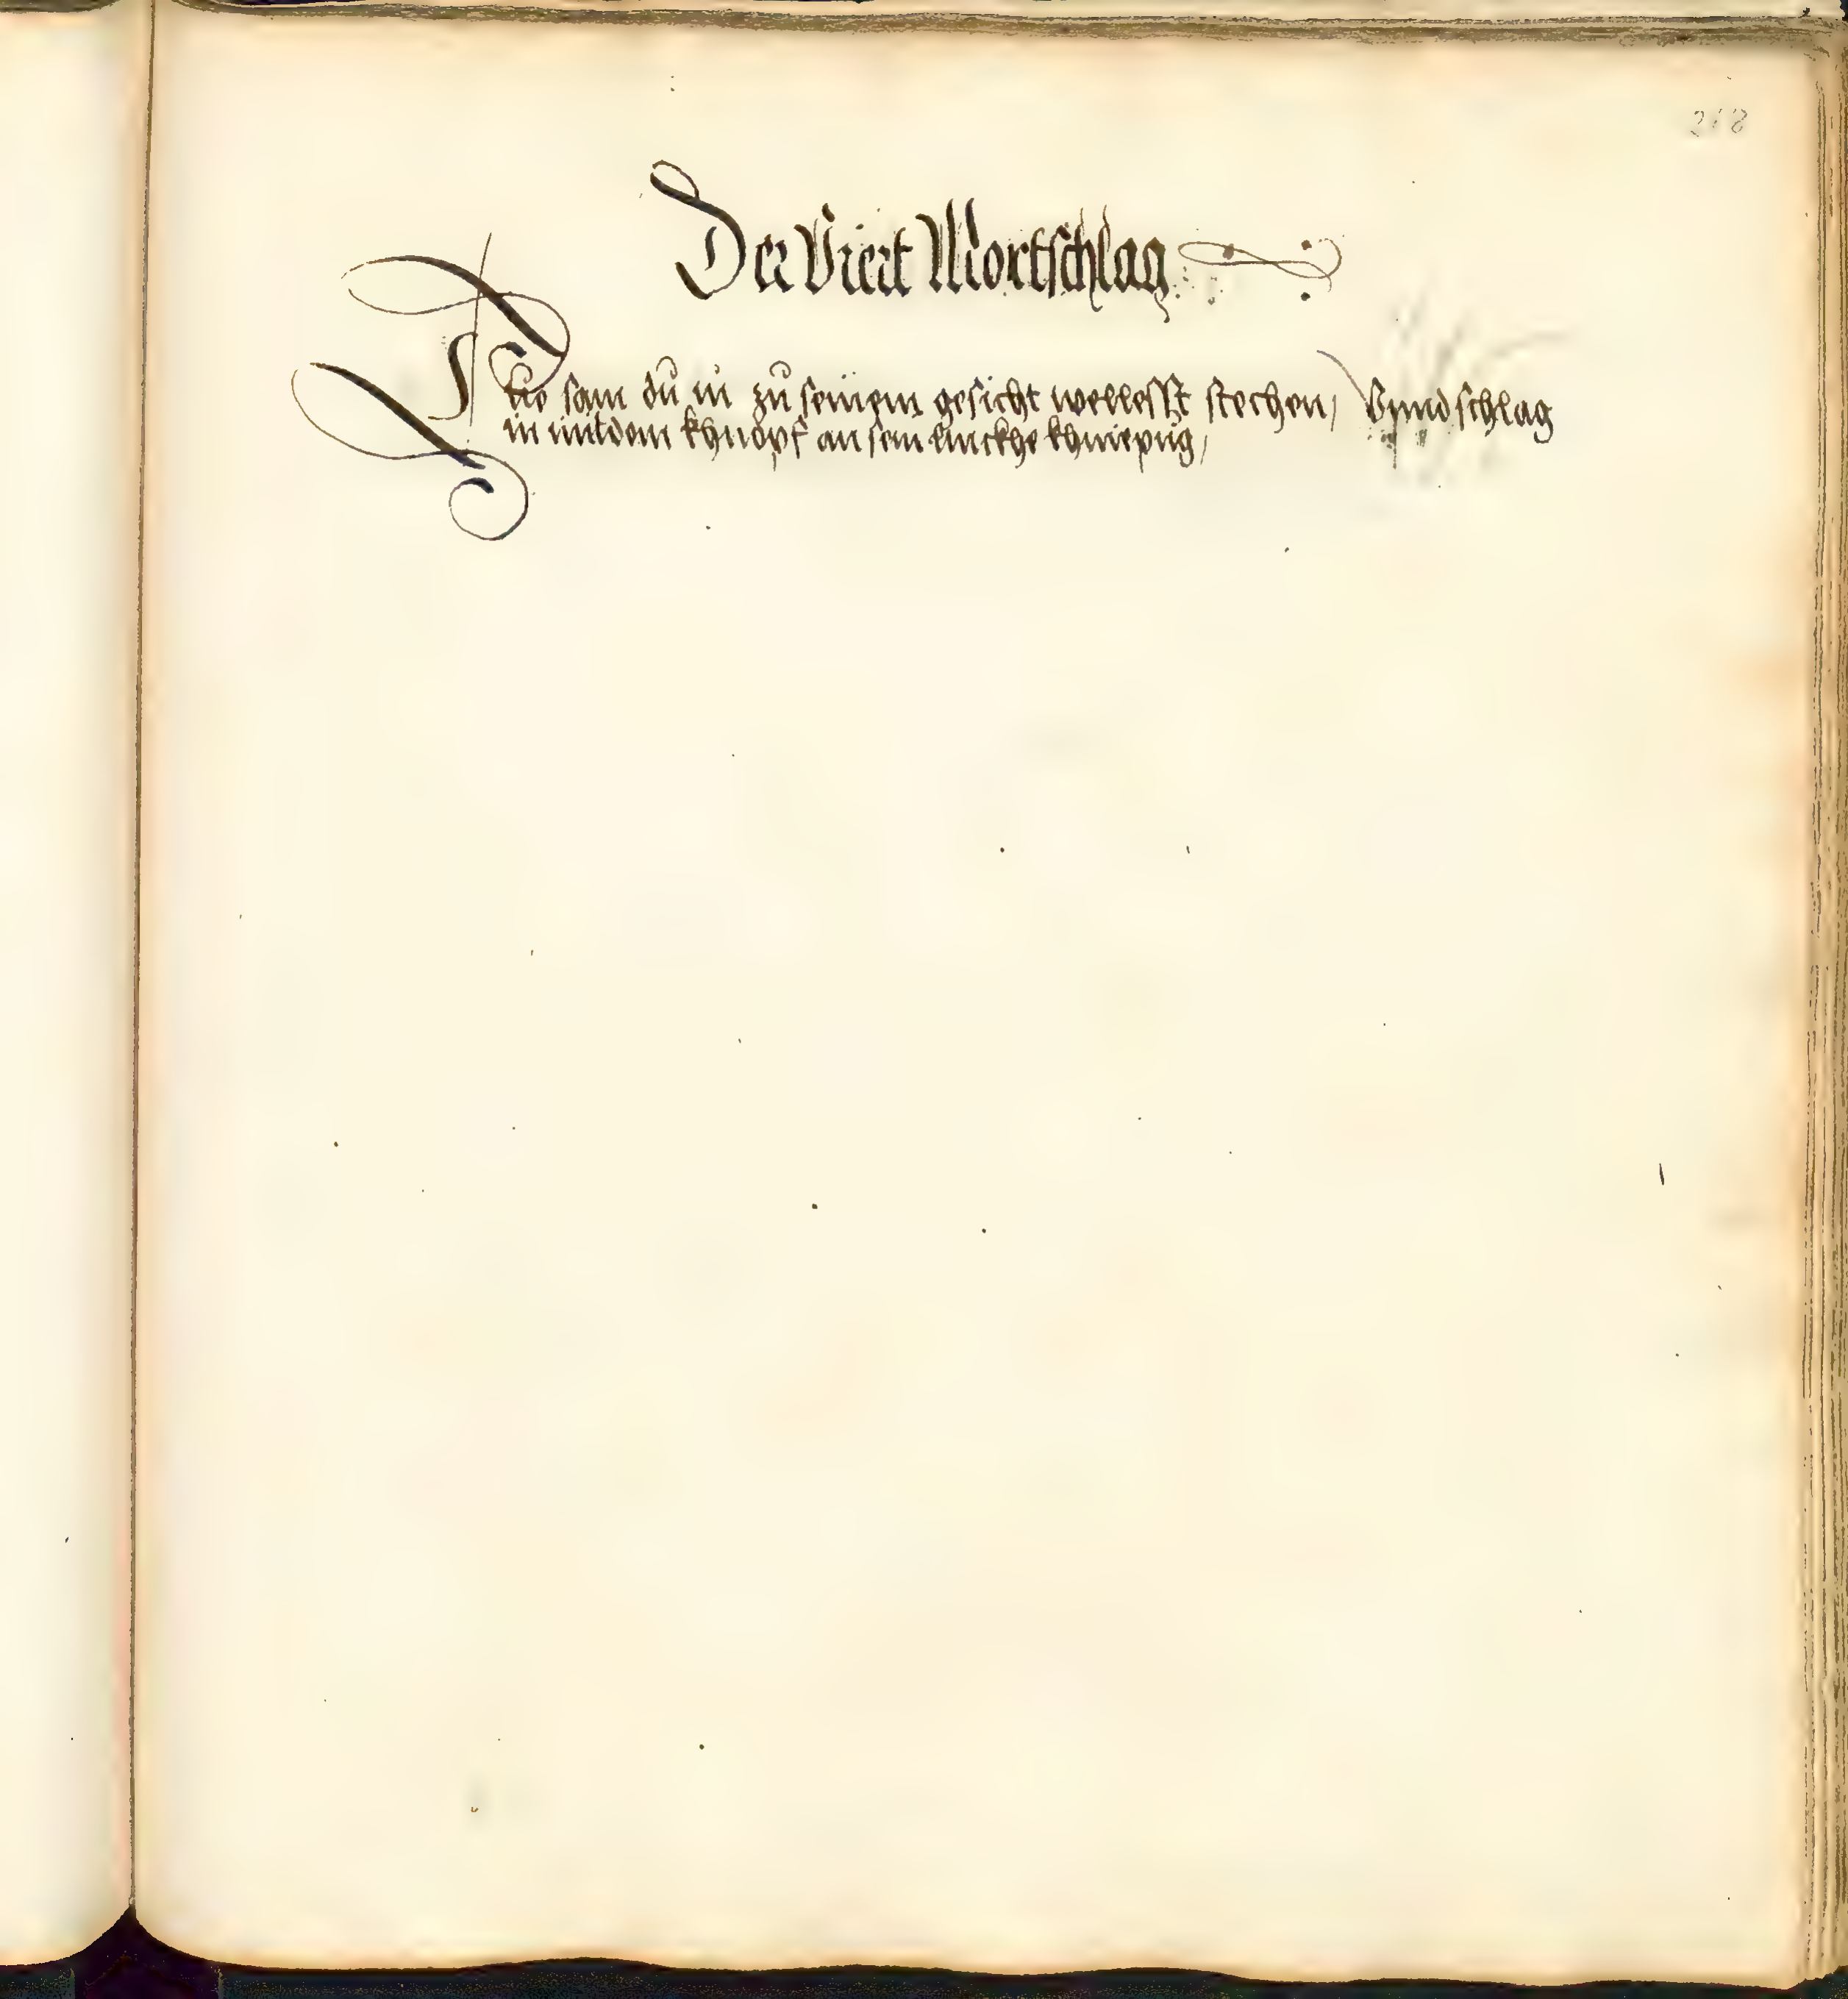 218
Der Viert Mortschlag
Thue sam du in zu seinem gesicht wellesst stechen, Vnnd schlag
in mit dem khnopf an sein linckhe khniepüg,